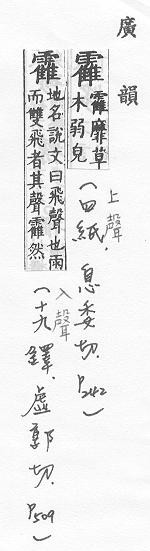 廣韻
靃 靃靡草
木弱皃
(四紙.息委切.P242)
上聲
靃 地名說文曰飛聲也雨
而雙飛者其聲靃然
(十九鐸.虛郭切.P509)
入聲